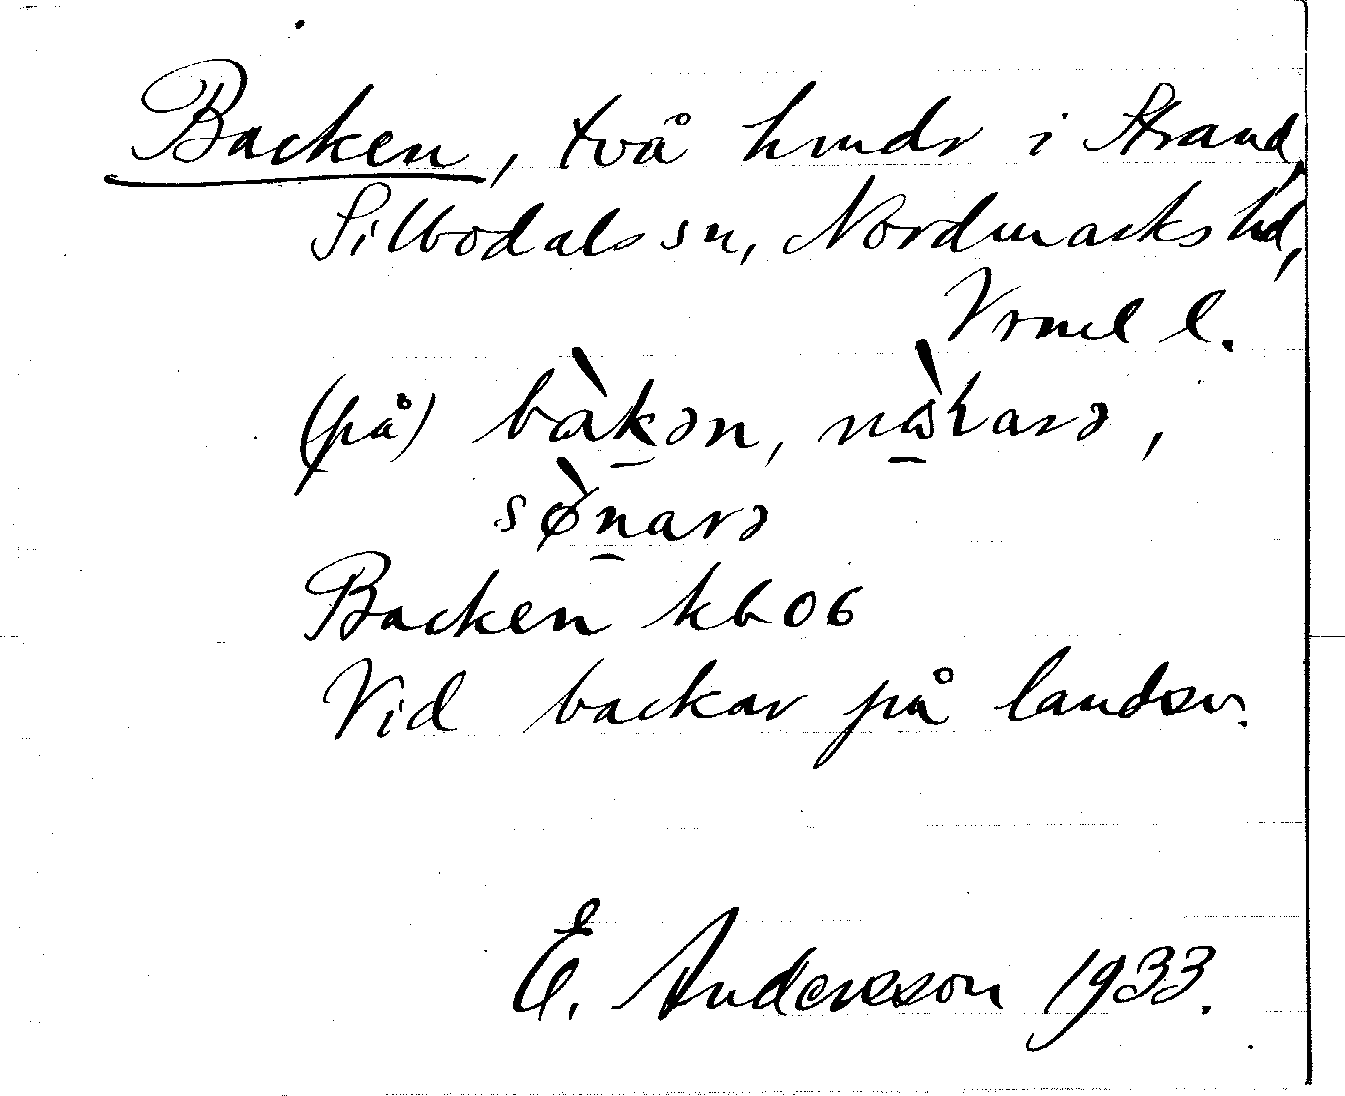 Backen, två hmdr i Strand,
Silbodals sn, Nordmarks hd,
Vrml l.
(på) bàk̠ən, nɷ̠̀rarə,
sø̀n̠arə
Backen kb 06
Vid backar på landsv.
E. Andersson 1933.